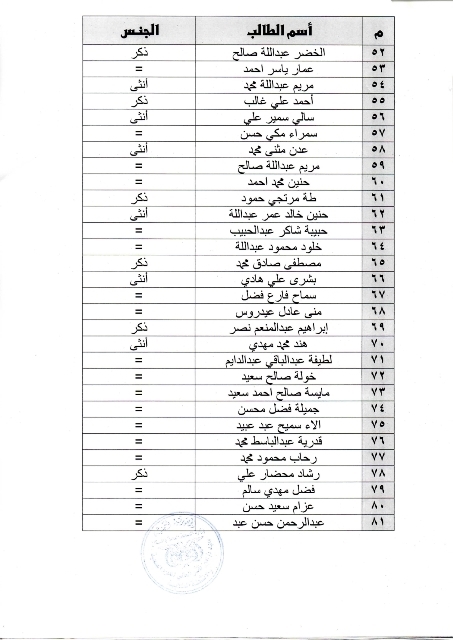 م أسم الطالب الجنس
٥٢ الخضر عبداللة صالح ذكر
٥٣ عمار ياسر احمد =
٥٤ مريم عبداللة محمد أنثى
٥٥ أحمد علي غالب ذكر
٥٦ سالي سمير علي أنثى
٥٧ سمراء مكي حسن =
٥٨ عدن مثنى محمد أنثى
٥٩ مريم عبداللة صالح =
٦٠ حنين محمد احمد =
٦١ طة مرتجي حمود ذكر
٦٢ حنين خالد عمر عبداللة أنثي
٦٣ حبيبة شاكر عبدالحبيب =
٦٤ خلود محمود عبداللة =
٦٥ مصطفى صادق محمد ذكر
٦٦ بشرى علي هادي أنثي
٦٧ سماح فارع فضل =
٦٨ منى عادل عيدروس =
٦٩ إبراهيم عبدالمنعم نصر ذكر
٧٠ هند محمد مهدي أنثى
٧١ لطيفة عبدالباقي عبدالدايم =
٧٢ خولة صالح سعيد =
٧٣ مايسة صالح احمد سعيد =
٧٤ جميلة فضل محسن =
٧٥ الاء سميح عبد عبيد =
٧٦ قدرية عبدالباسط محمد =
٧٧ رحاب محمود محمد =
٧٨ رشاد محضار علي ذكر
٧٩ فضل مهدي سالم =
٨٠ عزام سعيد حسن =
٨١ عبدالرحمن حسن عبد =